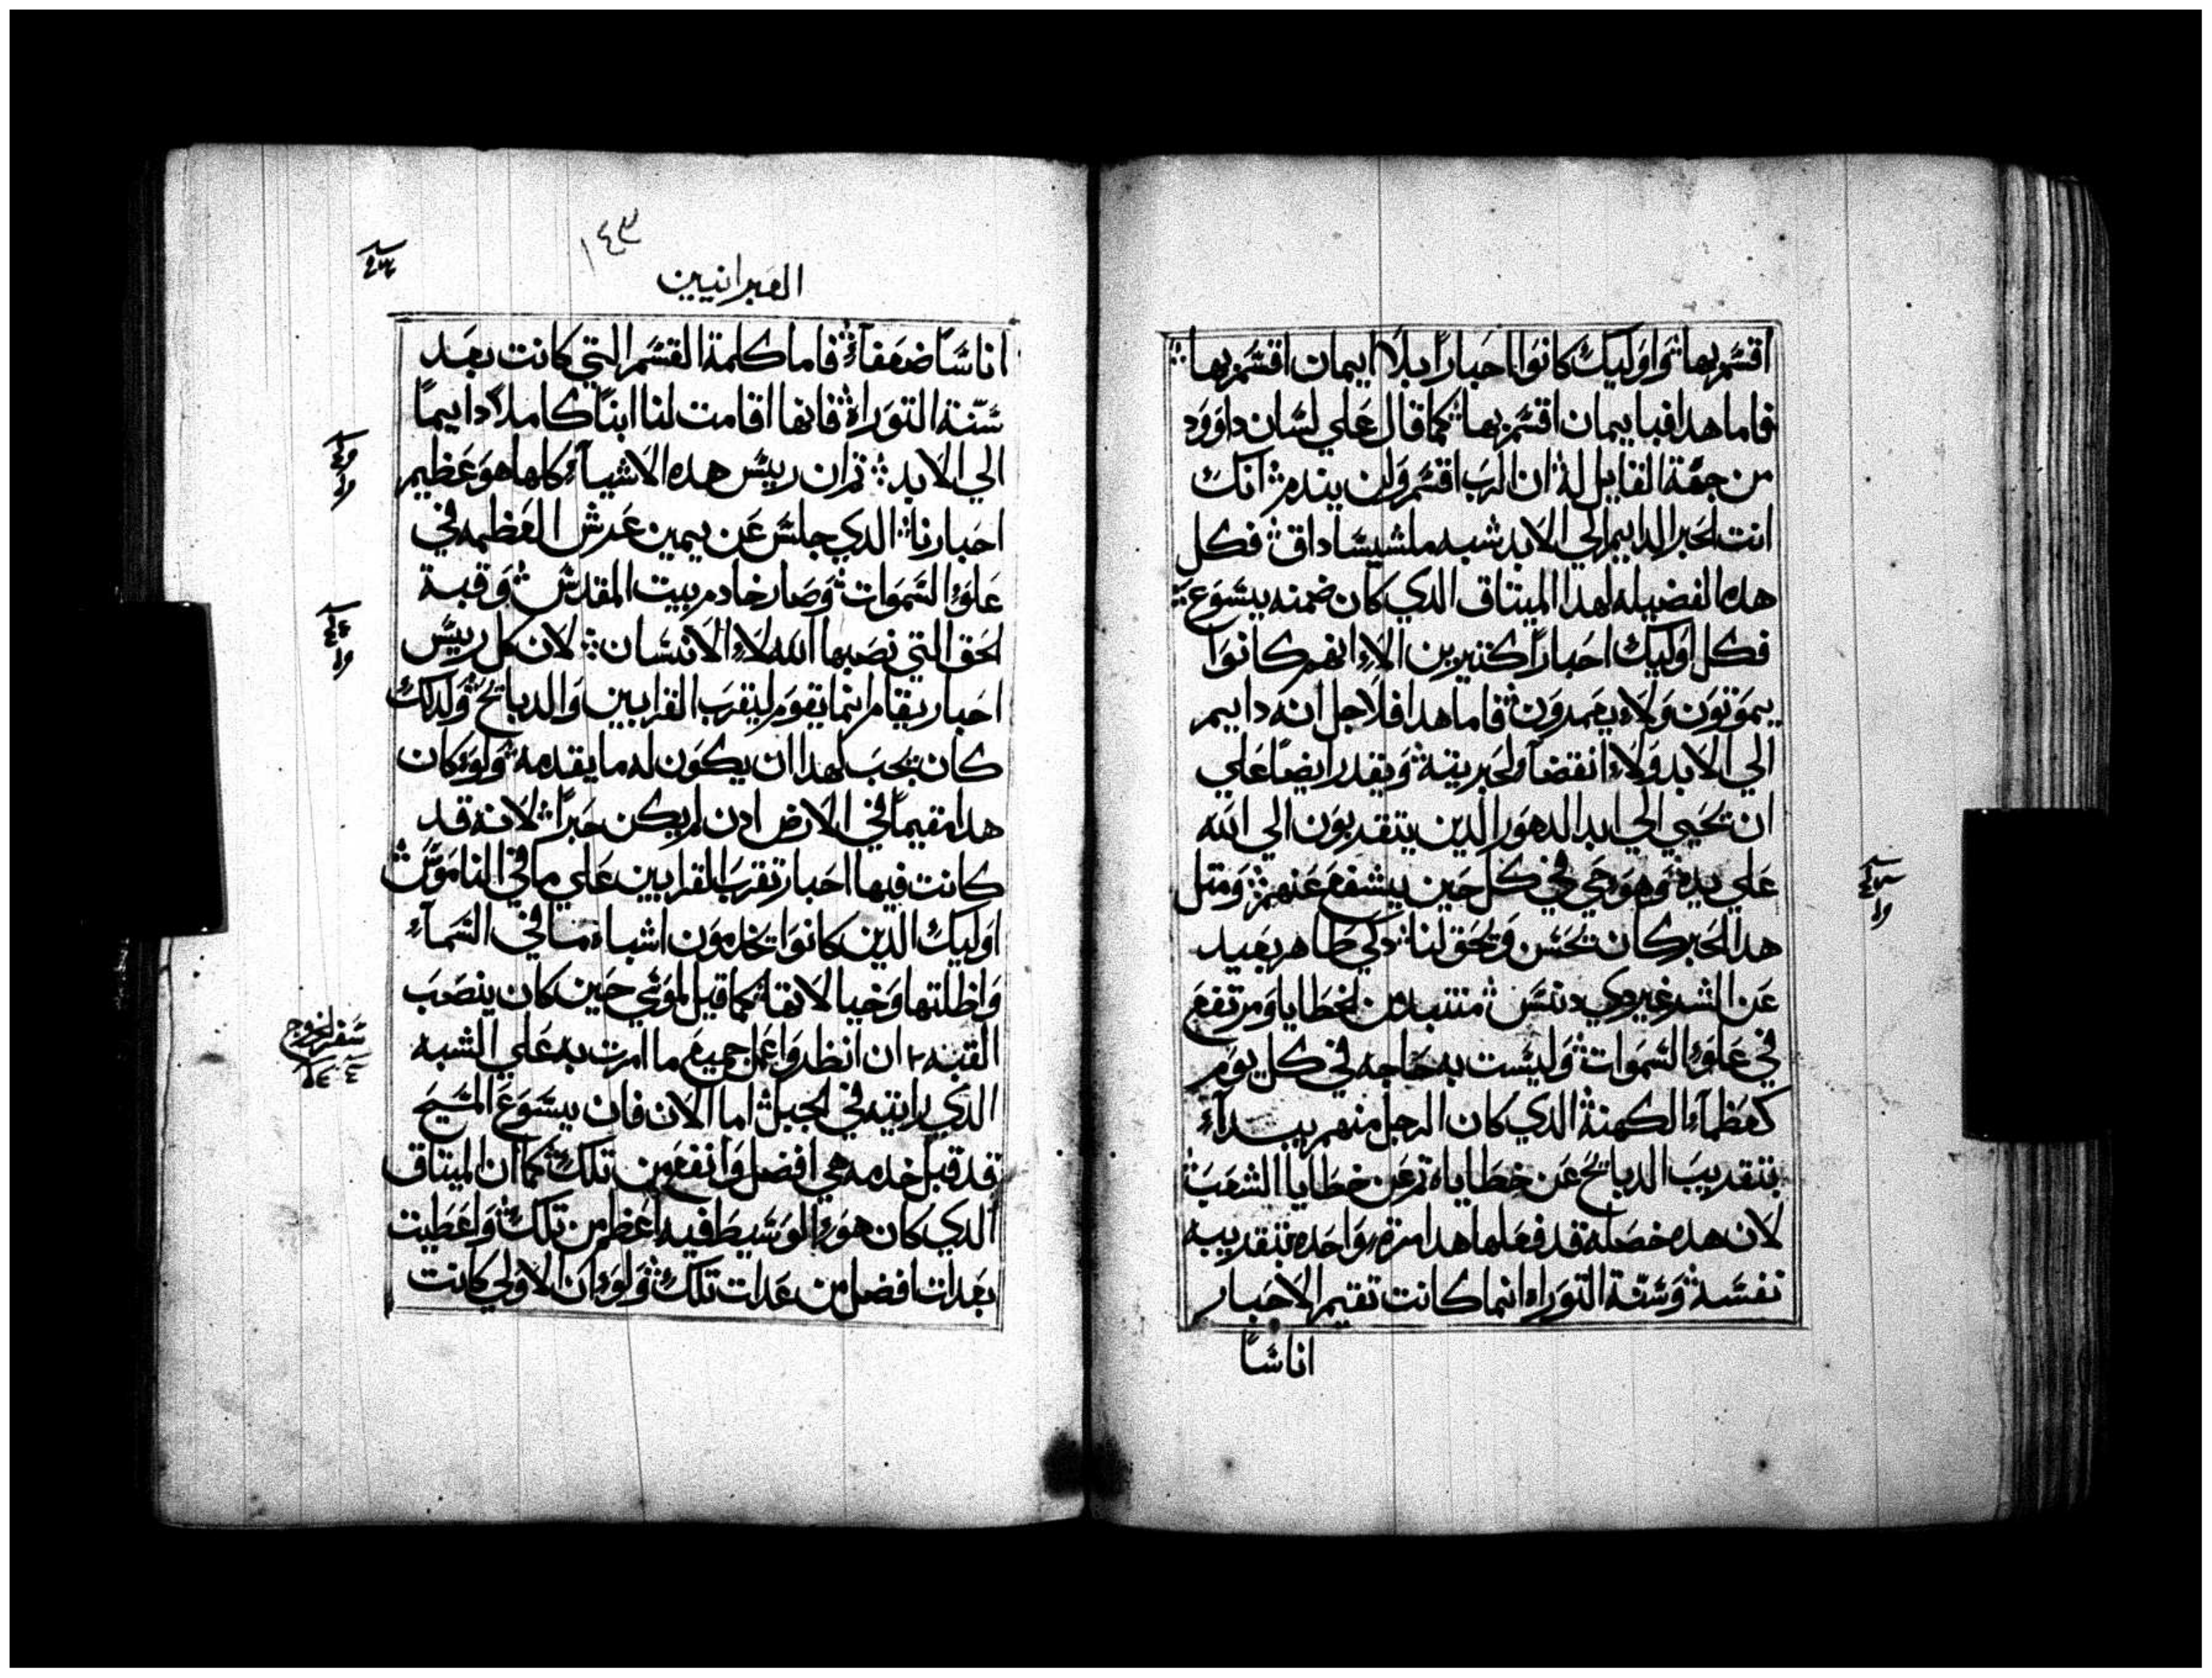 اقسم بها ۞ واوليك كانوا احبارا بلا ايمان اقسم بها
فاما هدا فبايمان اقسم بها كما قال علي لسان داوود
من جهة القايل له ان الرب اقسم ولن يندم انك
انت الحبر الدايم الي الابد شبه ملشيساداق فكل
هده الفضيله لهدا الميتاق الدي كان ضمنه يسوع
فكل اوليك احبارا كتيرين الا انهم كانوا
يموتون ولا يعمدون فاما هدا فلاجل انه دايم
الي الابد ولا انقضاء لحبريته ويقدر ايضا علي
ان تحيي الي ابد الدهور الدين يتقدبون الي الله
علي يده وهو حي في كل حين يشفع عنهم ومتل
هدا الحبر كان تحسن وتحق لنا دكي طاهر بعيد
عن الشر غير دي دنس منتبد من الخطايا ومرتفع
في علو السموات وليست به حاجه في كل يوم
كعظماء الكهنة الدي كان الرجل منهم يبداء
بتقديب الدبايح عن خطاياه تم عن خطايا الشعب
لان هده خصله قد فعلها هدا مرة واحده بتقديبه
نفسه وسنة التوراه انما كانت تقيم الاحبار
اناسا
١٤٣
العبرانيين
اناسا ضعفاء فاما كلمة القسم التي كانت بعد
سنة التوراة فانها اقامت لنا ابنا كاملا دايما
الي الابد تم ان رييس هده الاشياء كلها هو عظيم
احبارنا الدي جلس عن يمين عرش العظمه في
علو السموات وصار خادم بيت المقدس وقبة
الحق التي نصبها الله لا الانسان لان كل رييس
احبار يقام انما يقوم ليقرب القرابين والدبايح ولدلك
كان يجب لهدا ان يكون له ما يقدمه ولو كان
هدا مقيما في الارض ادن لم يكن حبرا لانه قد
كانت فيها احبار تقرب القرابين علي ما في الناموس
اوليك الدين كانوا تخدمون اشباه ما في السماء
واظلتها وخيالاتها كما قيل لموسي حين كان ينصب
القبه ان انظر واعمل جميع ما امرت به علي الشبه
الدي رايته في الجبل اما الان فان يسوع المسيح
قد قبل خدمه هي افضل وانفع من تلك كما ان الميتاق
الدي كان هو الوسيط فيه اعظم من تلك واعطيت
بعدات افضل من عدات تلك ولو ان الاولي كانت
سفر الخروج